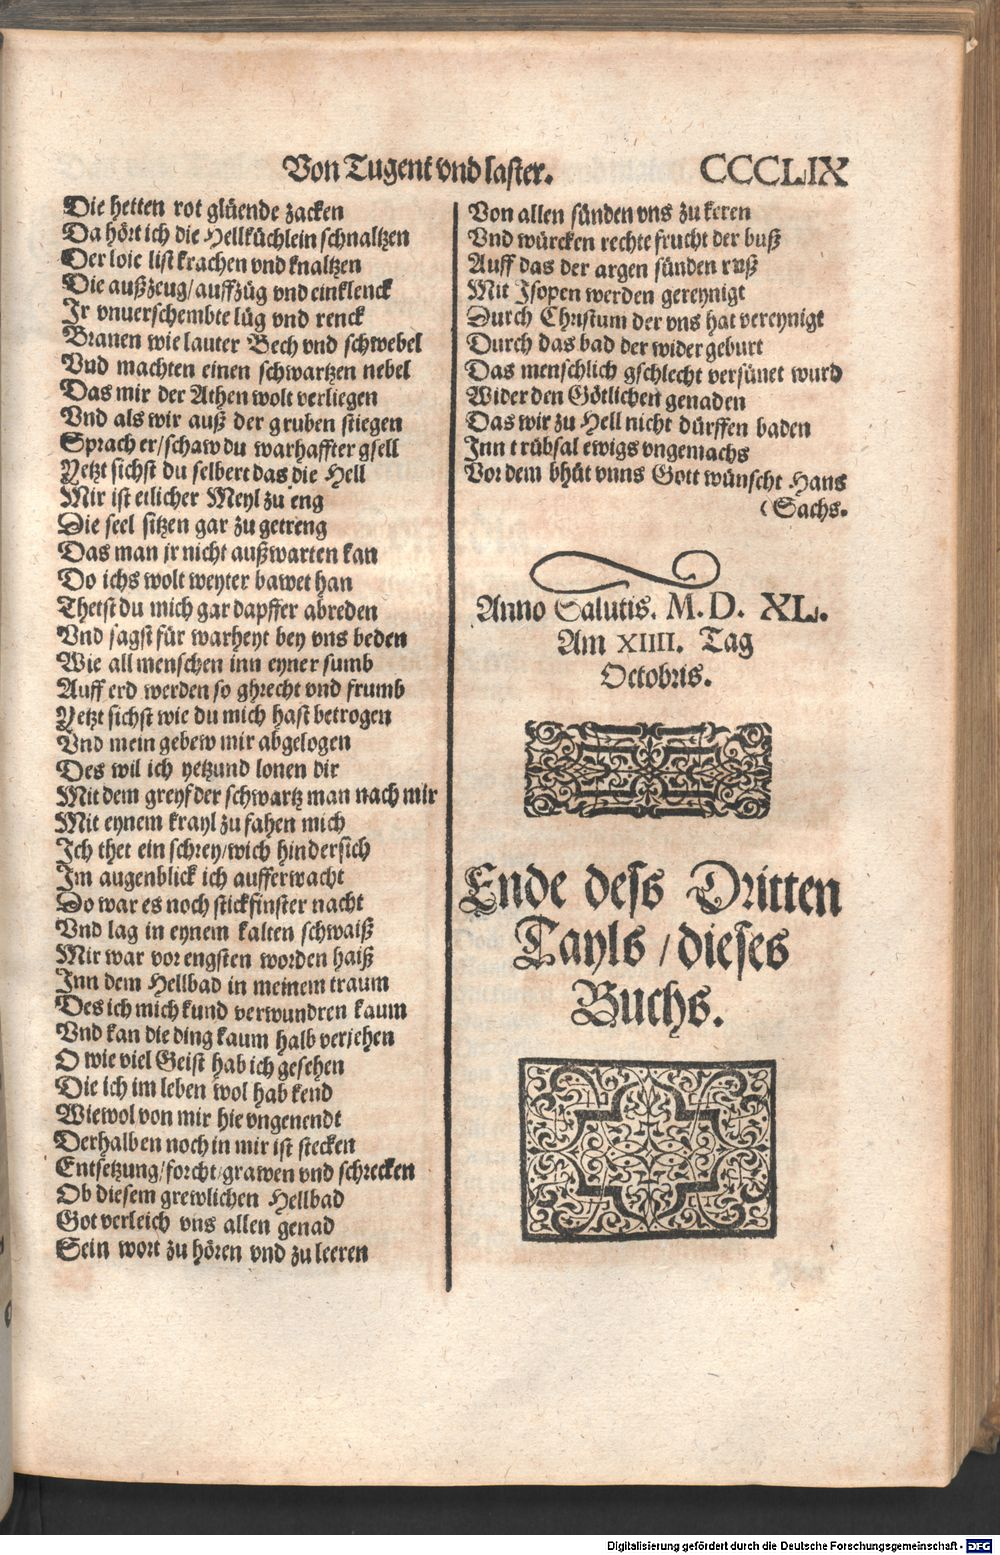 Von Tugent vnd laster. CCCLIX
Die hetten rot glüende zacken
Da hört ich die Hellküchlein schnaltzen
Der loic list krachen vnd knaltzen
Die außzeug/auffzüg vnd einklenck
Jr vnuerschembte lüg vnd renck
Branen wie lauter Bech vnd schwebel
Vnd machten einen schwartzen nebel
Das mir der Athen wolt verliegen
Vnd als wir auß der gruben stiegen
Sprach er/schaw du warhaffter gsell
Yetzt sichst du selbert das die Hell
Mir ist etlicher Meyl zu eng
Die seel sitzen gar zu getreng
Das man jr nicht außwarten kan
Do ichs wolt weyter bawet han
Thetst du mich gar dapffer abreden
Vnd sagst für warheyt bey vns beden
Wie all menschen inn eyner sumb
Auff erd werden so ghrecht vnd frumb
Yetzt sichst wie du mich hast betrogen
Vnd mein gebew mir abgelogen
Des wil ich yetzund lonen dir
Mit dem greyf der schwartz man nach mir
Mit eynem krayl zu fahen mich
Ich thet ein schrey/wich hindersich
Im augenblick ich aufferwacht
Do war es noch stickfinster nacht
Vnd lag in eynem kalten schwaiß
Mir war vor engsten worden haiß
Inn dem Hellbad in meinem traum
Des ich mich kund verwundren kaum
Vnd kan die ding kaum halb veriehen
O wie viel Geist hab ich gesehen
Die ich im leben wol hab kend
Wiewol von mir hie vngenendt
Derhalben noch in mir ist stecken
Entsetzung/forcht/grawen vnd schrecken
Ob diesem grewlichen Hellbad
Got verleich vns allen genad
Sein wort zu hören vnd zu leeren
Von allen sünden vns zu keren
Vnd würcken rechte frucht der buß
Auff das der argen sünden ruß
Mit Isopen werden gereynigt
Durch Christum der vns hat vereynigt
Durch das bad der wider geburt
Das menschlich gschlecht versünet wurd
Wider den Götlichen genaden
Das wir zu Hell nicht dürffen baden
Inn trübsal ewigs vngemachs
Vor dem bhüt vnns Gott wünscht Hans
(Sachs.
Anno Salutis. M. D. XL.
Am XIIII. Tag
Octobris.
Ende dess Dritten
Tayls / dieses
Buchs.
Digitalisierung gefördert durch die Deutsche Forschungsgemeinschaft - DFG